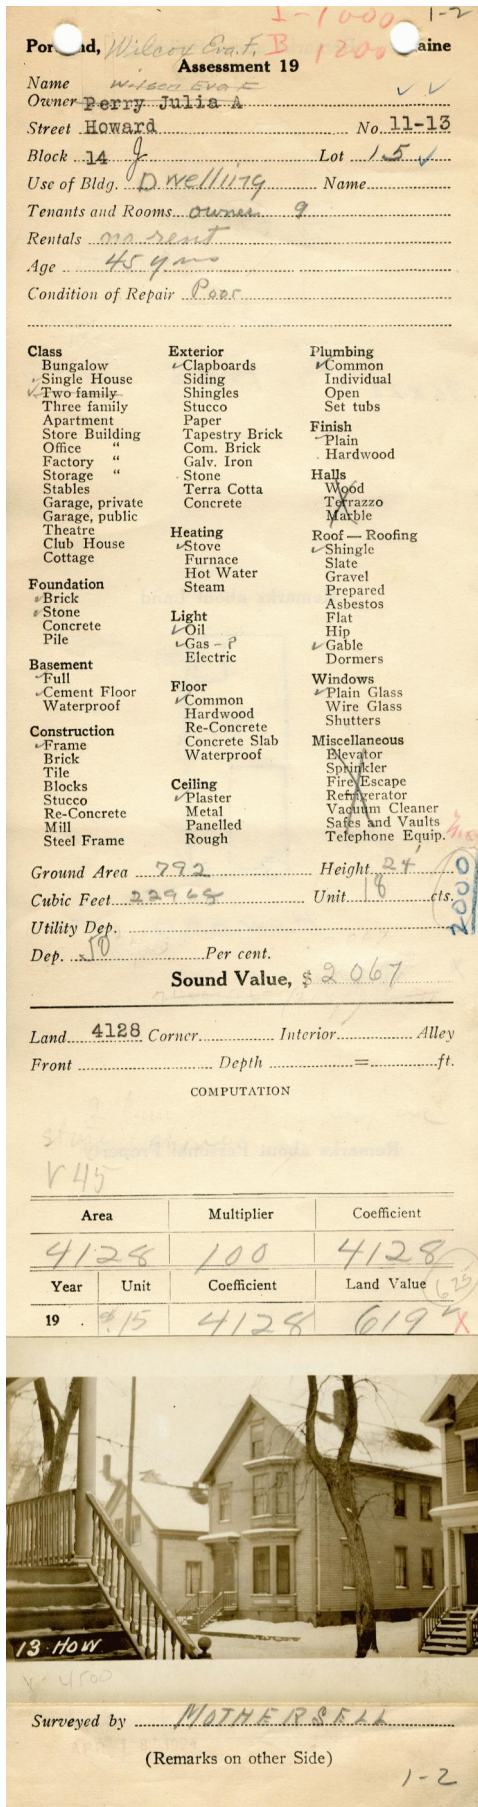 L-1000 1-2
Portland, Wilcox Eva. F. B 1200 Maine
Assessment 19
Name Wilson Eva F
Owner Perry Julia A
Street Howard No. 11-13
Block 14 J Lot 15
Use of Bldg. Dwelling Name
Tenants and Rooms owner 9
Rentals no rent
Age 45 yrs
Condition of Repair Poor
Class
Bungalow
Single House
Two family
Three family
Apartment
Store Building
Office "
Factory "
Storage "
Stables
Garage, private
Garage, public
Theatre
Club House
Cottage
Foundation
Brick
Stone
Concrete
Pile
Basement
Full
Cement Floor
Waterproof
Construction
Frame
Brick
Tile
Blocks
Stucco
Re-Concrete
Mill
Steel Frame
Exterior
Clapboards
Siding
Shingles
Stucco
Paper
Tapestry Brick
Com. Brick
Galv. Iron
Stone
Terra Cotta
Concrete
Heating
Stove
Furnace
Hot Water
Steam
Light
Oil
Gas - P
Electric
Floor
Common
Hardwood
Re-Concrete
Concrete Slab
Waterproof
Ceiling
Plaster
Metal
Panelled
Rough
Plumbing
Common
Individual
Open
Set tubs
Finish
Plain
Hardwood
Halls
Wood
Terrazzo
Marble
Roof — Roofing
Shingle
Slate
Gravel
Prepared
Asbestos
Flat
Hip
Gable
Dormers
Windows
Plain Glass
Wire Glass
Shutters
Miscellaneous
Elevator
Sprinkler
Fire Escape
Refrigerator
Vacuum Cleaner
Safes and Vaults
Telephone Equip.
Ground Area 792 Height 24
Cubic Feet 22968 Unit 18 cts.
2000
Utility Dep.
Dep. 50 Per cent.
Sound Value, $ 2067
Land 4128 Corner Interior Alley
Front Depth = ft.
COMPUTATION
V 45
Area Multiplier Coefficient
4128 100 4128
Year Unit Coefficient Land Value 625
19 . $.15 4128 619 X
13 HOW
V- 4500
Surveyed by MOTHERSELL
(Remarks on other Side)
1-2